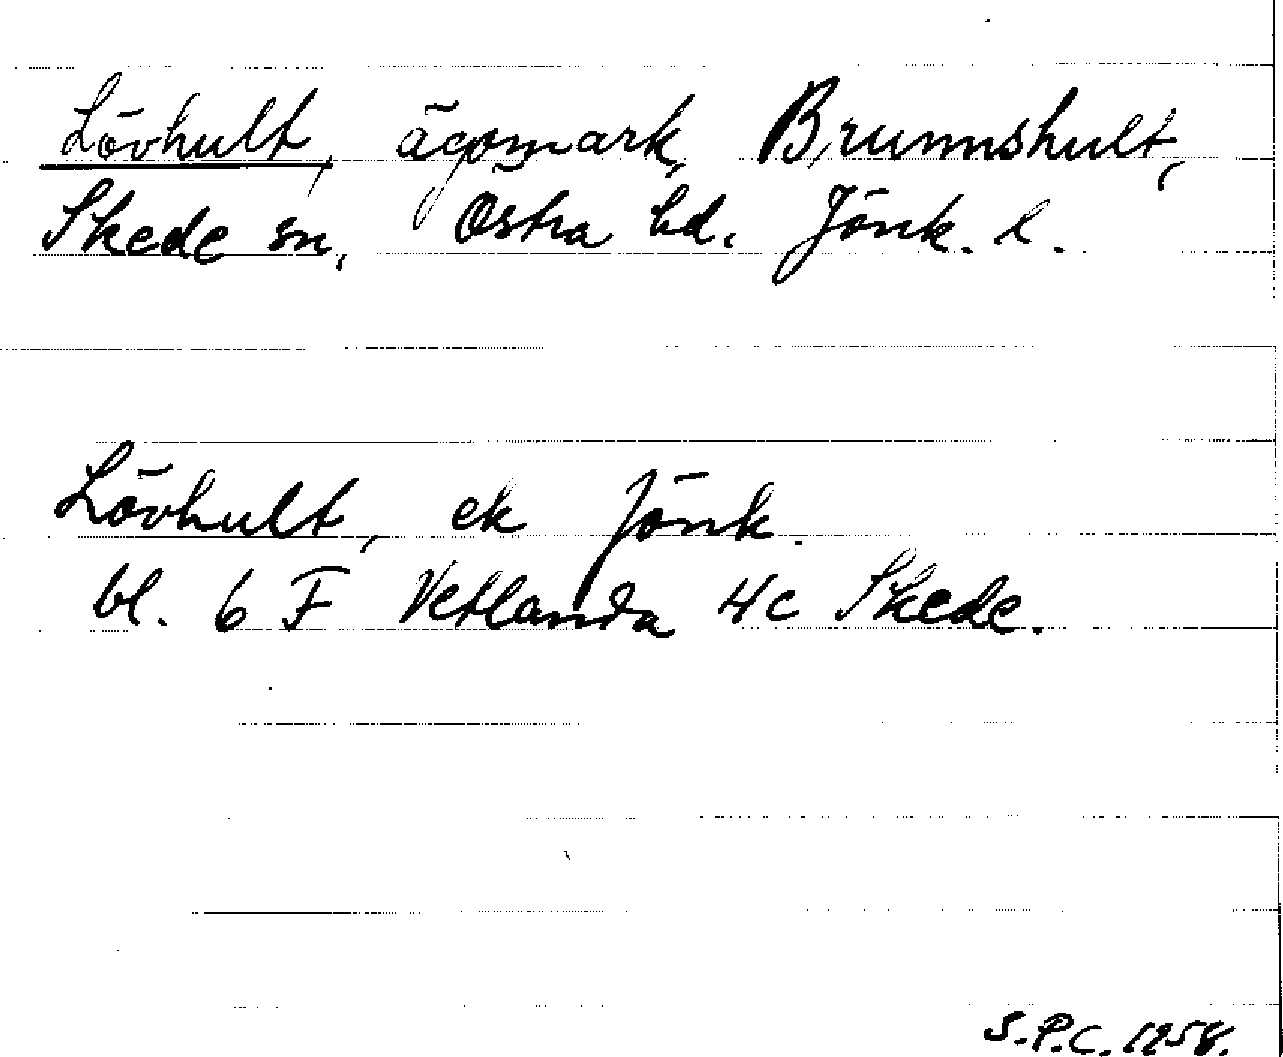 Lövhult, ägomark, Brunnshult,
Skede sn, Östra hd. Jönk. l.
Lövhult, ek Jönk.
bl. 6 F Vetlanda 4c Skede.
S.P.C. 1958.